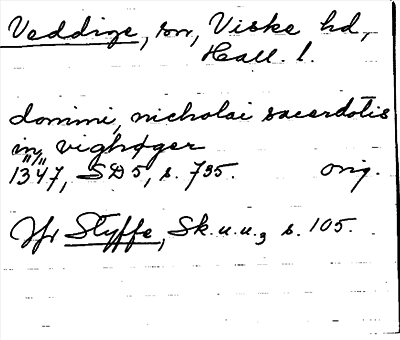 Veddige, sn, Viske hd,
Hall. l.
domini, nicholai sacerdotis
in vighøger
1347, SD 5, s. 735. orig.
Jfr Styffe, Sk.u.u.3 s. 105.